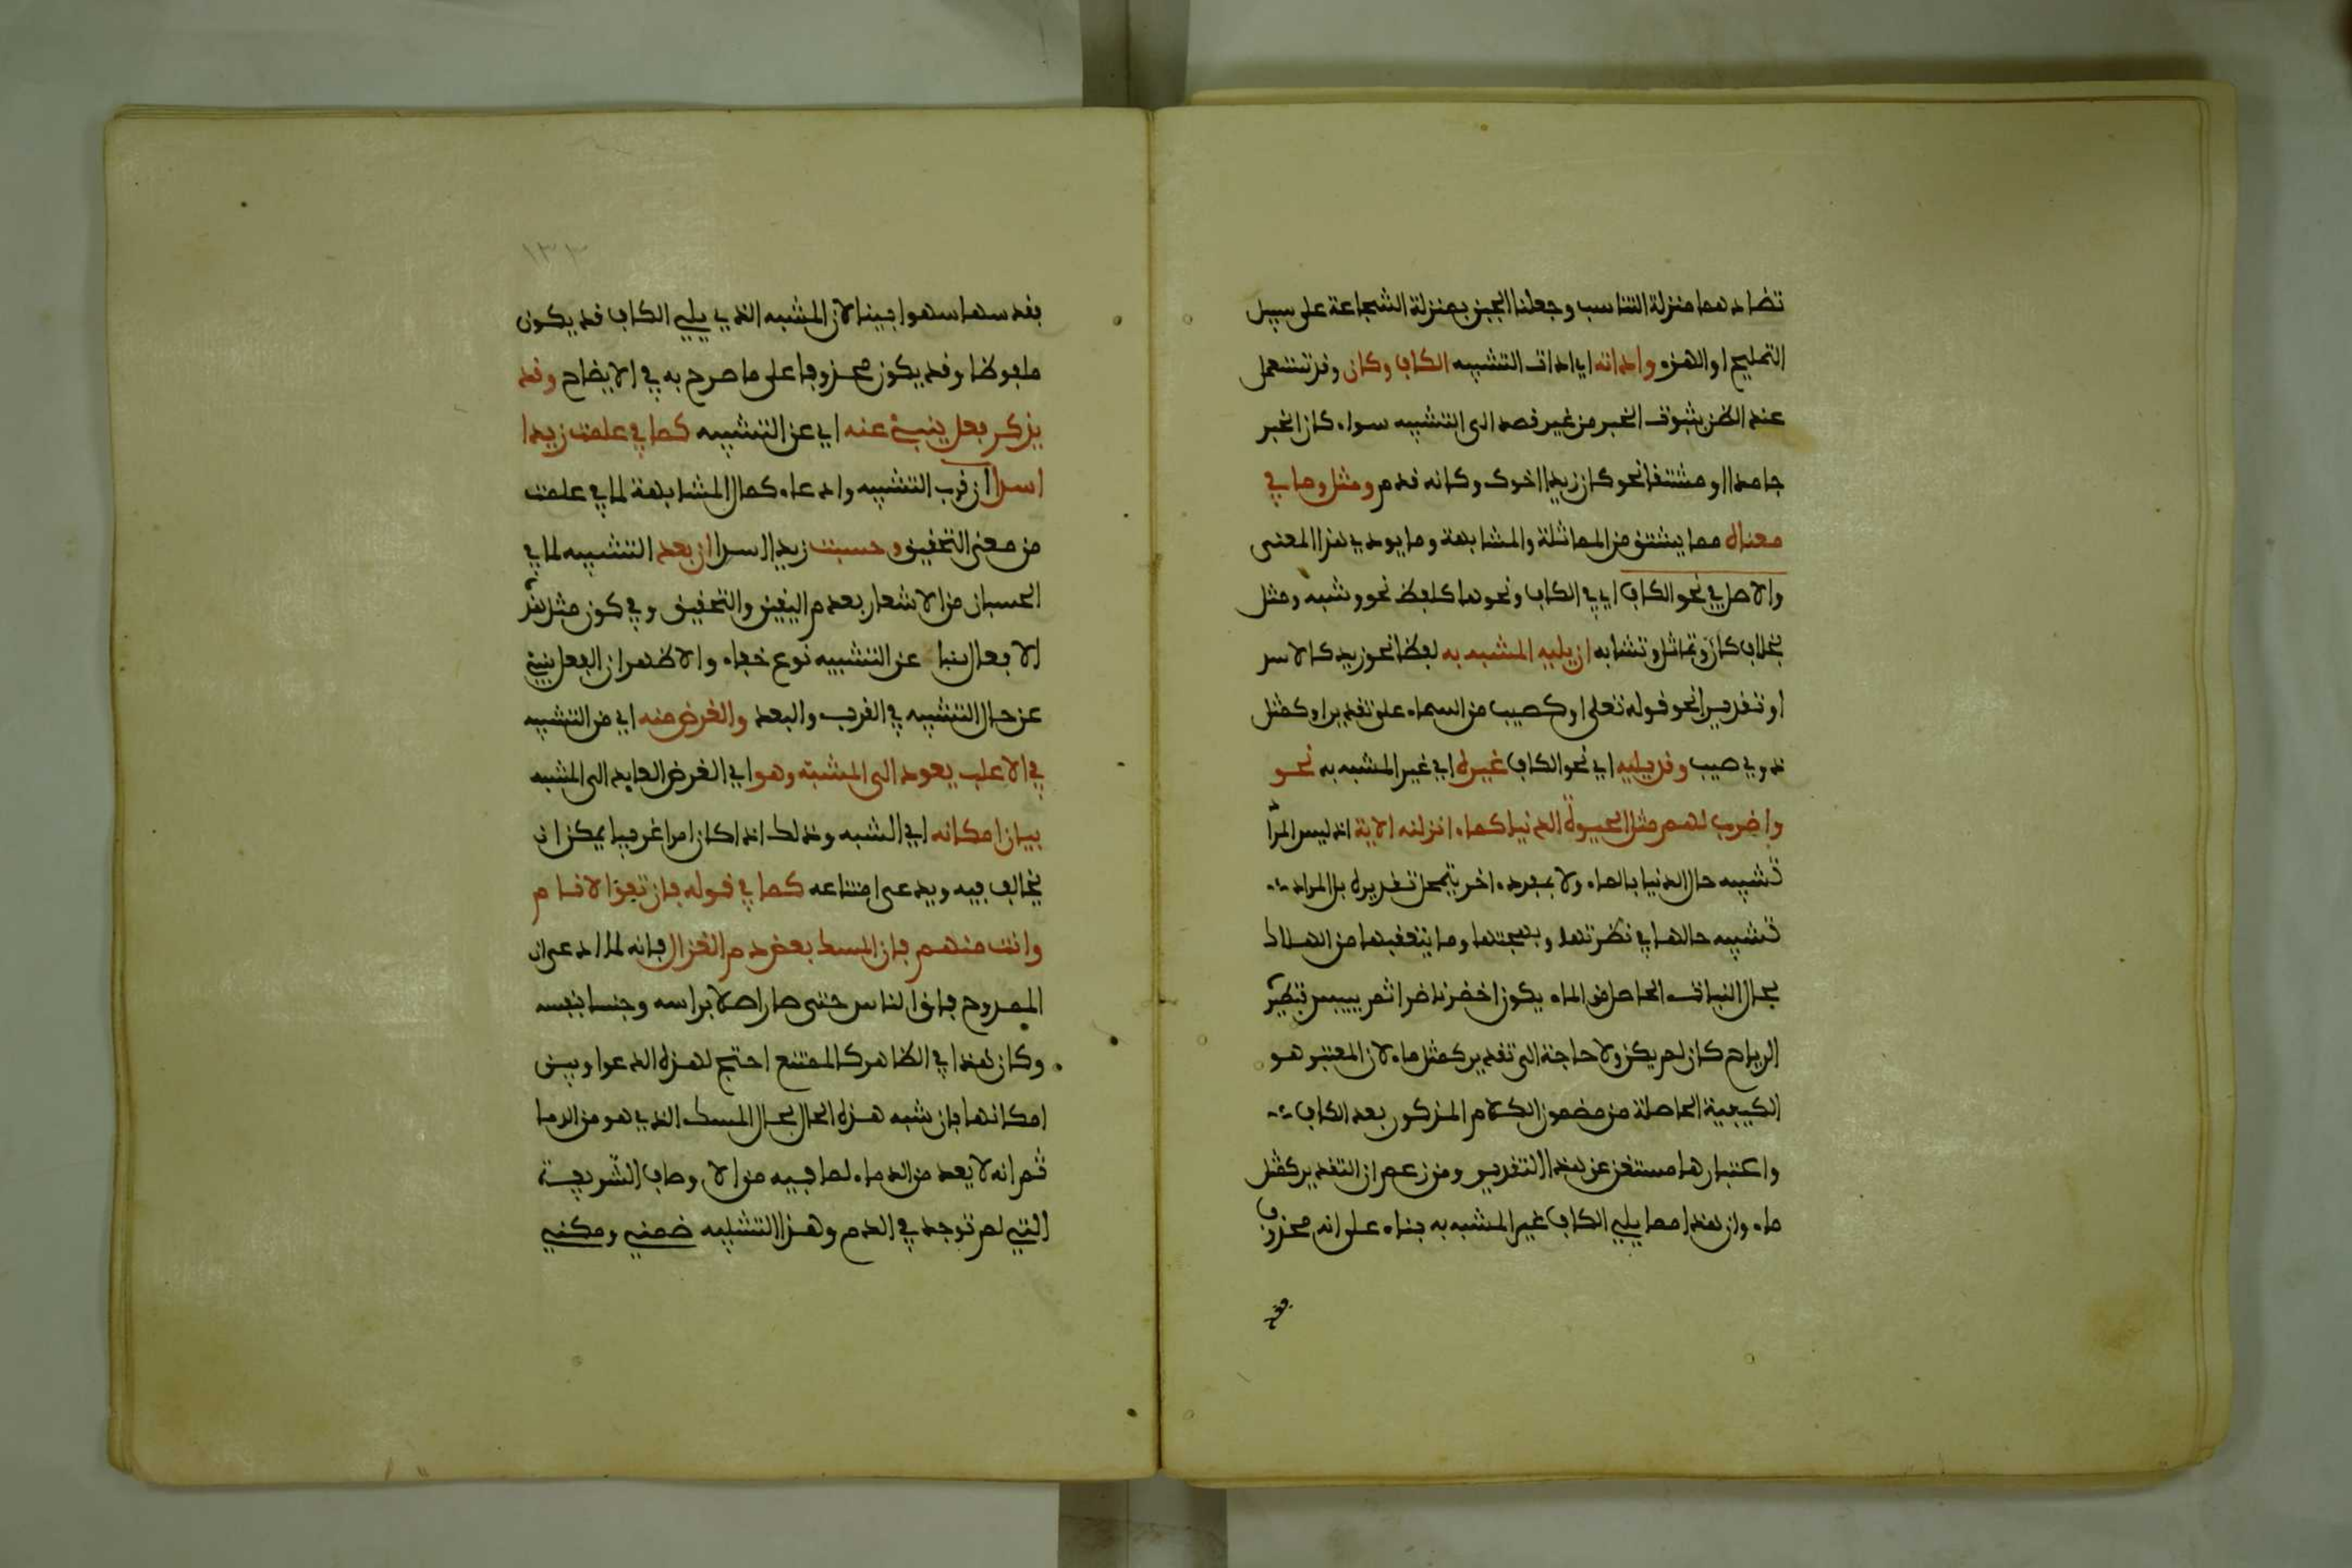 تضادهما منزلة التناسب وجعلنا الجبن بمنزلة الشجاعة على سبيل
التمليح او الهزء واداته اي ادات التشبيه الكاف وكان وقد تستعمل
عند الظن بثبوت الخبر من غير قصد الى التشبيه سواء كان الخبر
جامدا او مشتقا نحو كان زيدا اخوك وكانه قدم ومثل وما في
معناه مما يشتق من المماثلة والمشابهة وما يودي هذا المعنى
والاصل في نحو الكاف اي في الكاف ونحوها كلفظ نحو وشبه ومثل
بخلاف كان وتماثل وتشابه ان يليه المشبه به لفظا نحو زيد كالاسد
او تقديرا نحو قوله تعلى او كصيب من السماء على تقدير او كمثل
ذوي صيب وقد يليه اي نحو الكاف غيره اي غير المشبه به نحو
واضرب لهم مثل الحيوة الدنيا كماء انزلنه الاية اذ ليس المراد
تشبيه حال الدنيا بالماء ولا بمفرد اخر يتمحل تقديره بل المراد
تشبيه حالها في نضرتها وبهجتها وما يتعقبها من الهلاك
بحال النبات الحاصل من الماء يكون اخضر ناضرا ثم ييبس فتطيره
الرياح كان لم يكن ولا حاجة الى تقدير كمثل ماء لان المعتبر هو
الكيفية الحاصلة من مضمون الكلام المذكور بعد الكاف
واعتبارها مستغن عن هذا التقدير ومن زعم ان التقدير كمثل
ماء وان هذا مما يلي الكاف غير المشبه به بناء على انه محذوف
فقد
١٣٣
فقد سها سهوا بينا لان المشبه الذي يلي الكاف قد يكون
ملفوظا وقد يكون محذوفا على ما صرح به في الايضاح وقد
يذكر فعل ينبئ عنه اي عن التشبيه كما في علمت زيدا
اسدا ان قرب التشبيه وادعاء كمال المشابهة لما في علمت
من معنى التحقيق وحسبت زيدا اسدا ان بعد التشبيه لما في
الحسبان من الاشعار بعدم اليقين والتحقيق وفي كون مثل هذه
الافعال منبا عن التشبيه نوع خفاء والاظهر ان الفعل ينبئ
عن حال التشبيه في القرب والبعد والغرض منه اي من التشبيه
في الاغلب يعود الى المشبه وهو اي الغرض العايد الى المشبه
بيان امكانه اي المشبه وذلك اذا كان امرا غريبا يمكن ان
يخالف فيه ويدعى امتناعه كما في قوله فان تفق الانام
وانت منهم فان المسك بعض دم الغزال فانه لما ادعى ان
الممدوح فاق الناس حتى صار اصلا براسه وجنسا بنفسه
وكان هذا في الظاهر كالممتنع احتج لهذه الدعوا وبين
امكانها بان شبه هذه الحال بحال المسك الذي هو من الدما
ثم انه لا يعد من الدماء لما فيه من الاوصاف الشريفة
التي لم توجد في الدم وهذا التشبيه ضمني ومكني